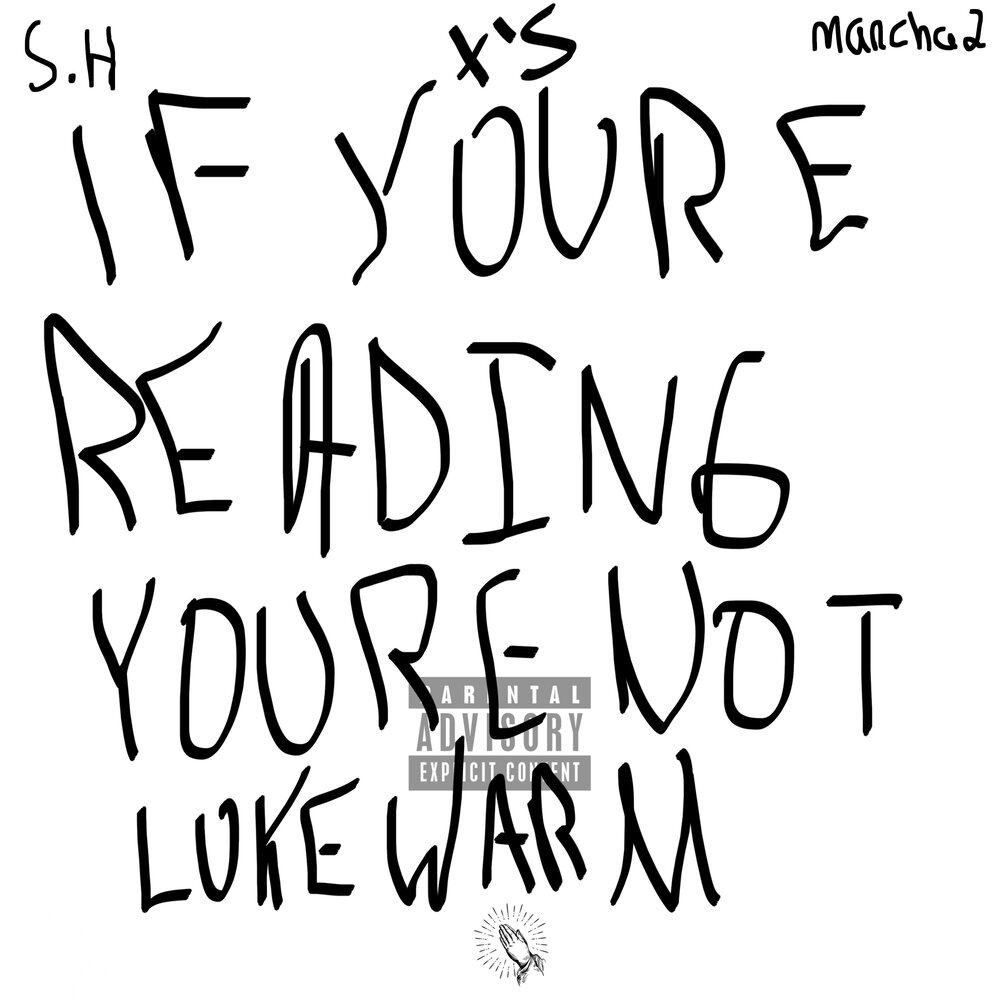 S.H
x's
Marcha2
IF YOURE
READING
YOURE NOT
LUKEWARM
PARENTAL
ADVISORY
EXPLICIT CONTENT